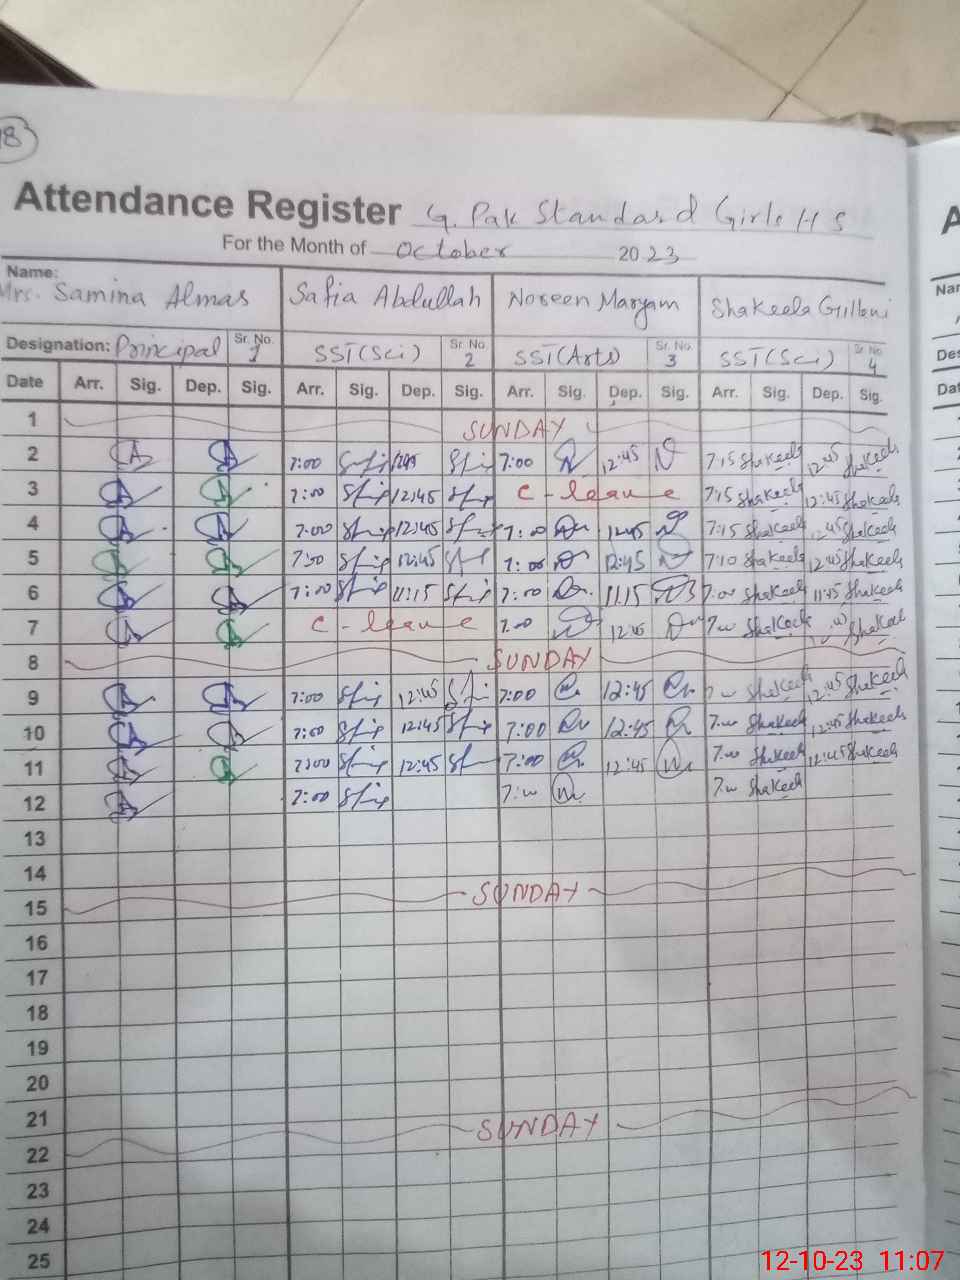 18
Attendance Register G. Pak Standard Girls H S
For the Month of October 2023
Name: Mrs. Samina Almas Safia Abdullah Noreen Maryam Shakeela Gillani
Designation: Principal Sr. No. 1 SST(Sci) Sr. No. 2 SST(Arts) Sr. No. 3 SST(Sci) Sr. No. 4
Date Arr. Sig. Dep. Sig. Arr. Sig. Dep. Sig. Arr. Sig. Dep. Sig. Arr. Sig. Dep. Sig.
1 SUNDAY
2 7:00 1245 7:00 12:45 7:15 Shakeela 12:45 Shakeela
3 7:00 12:45 C-leave 7:15 Shakeela 12:45 Shakeela
4 7:00 12:45 7:00 7:15 Shakeela 12:45 Shakeela
5 12:45 7:00 12:45 7:10 Shakeela 12:45 Shakeela
6 7:00 11:15 7:00 11:15 7:00 Shakeela Shakeela
7 C-leave 7:00 12:45 7:00 Shakeela Shakeela
8 SUNDAY
9 7:00 12:45 7:00 12:45 Shakeela 12:45 Shakeela
10 7:00 12:45 7:00 12:45 7:00 Shakeela 12:45 Shakeela
11 7:00 12:45 7:00 12:45 7:00 Shakeela 12:45 Shakeela
12 7:00 7:00 7:00 Shakeela
13
14
15 SUNDAY
16
17
18
19
20
21
22 SUNDAY
23
24
25
A
Nar
Des
Dat
12-10-23 11:07